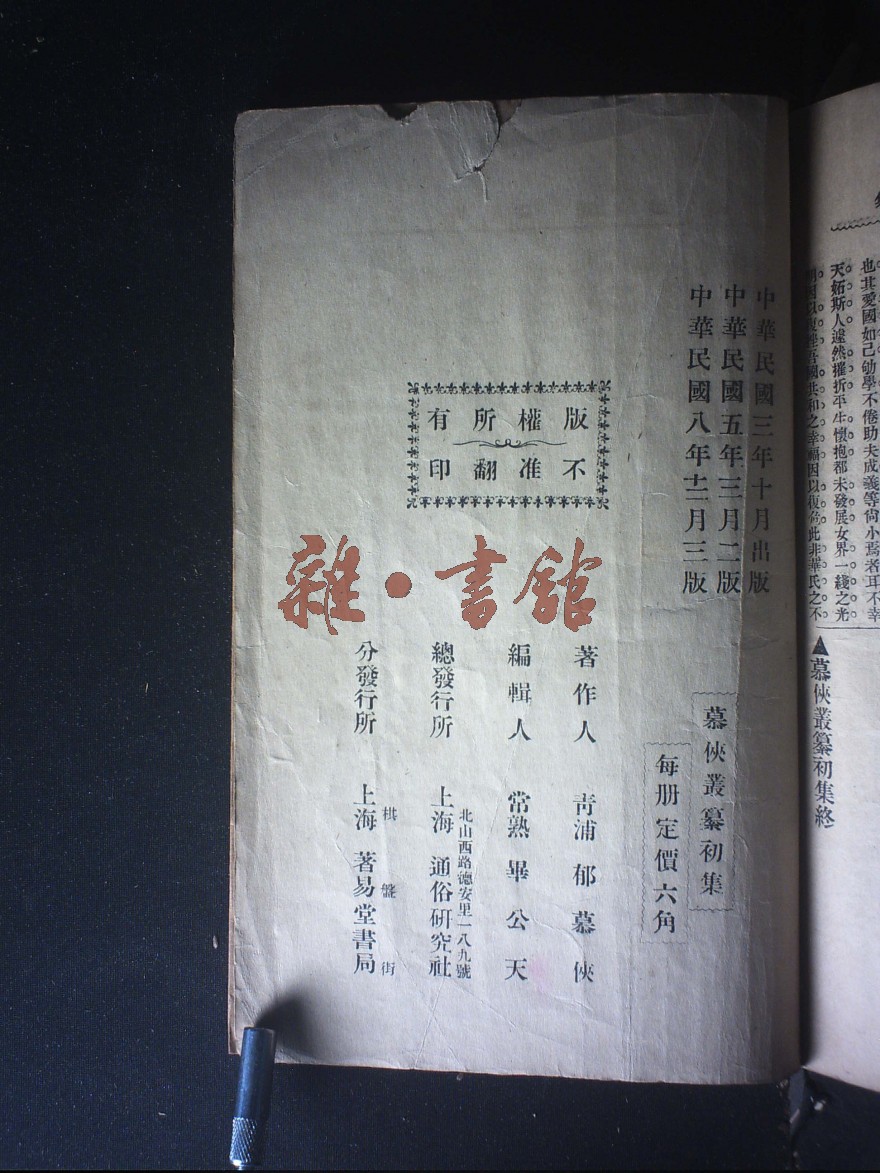 也其愛國如己劬學不倦助夫成義等尙小焉者耳不幸
天妬斯人遽然摧折平生懷抱都未發展女界一綫之光
▲慕俠叢纂初集終
中華民國三年十月出版
中華民國五年三月二版
中華民國八年十二月三版
慕俠叢纂初集
每册定價六角
版權所有
不准翻印
著作人 靑浦郁慕俠
編輯人 常熟畢公天
總發行所 上海北山西路德安里一八九號通俗研究社
分發行所 上海棋盤街著易堂書局
雜·書館